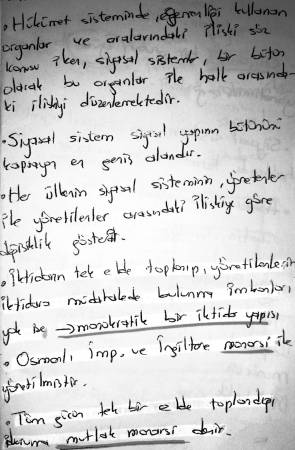 • Hükümet sisteminde, egemenliği kullanan
organlar ve aralarındaki ilişki söz
konusu iken, siyasal sistemler, bir bütün
olarak bu organlar ile halk arasında-
ki ilişkiyi düzenlemektedir.
• Siyasal sistem siyasal yapının bütününü
kapsayan en geniş alandır.
• Her ülkenin siyasal sisteminin, yönetenler
ile yönetilenler arasındaki ilişkiye göre
değişiklik gösterir.
• İktidarın tek elde toplanıp, yönetilenlerin
iktidara müdahalede bulunma imkanları
yok ise → monokratik bir iktidar yapısı
• Osmanlı İmp. ve İngiltere monarşi ile
yönetilmiştir.
• Tüm gücün tek bir elde toplandığı
duruma mutlak monarşi denir.